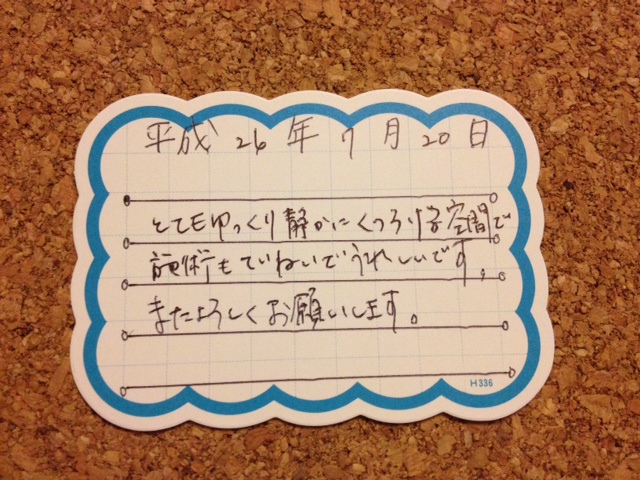 平成 26 年 7 月 20 日
とてもゆっくり静かにくつろげる空間で
施術もていねいでうれしいです。
またよろしくお願いします。
H336